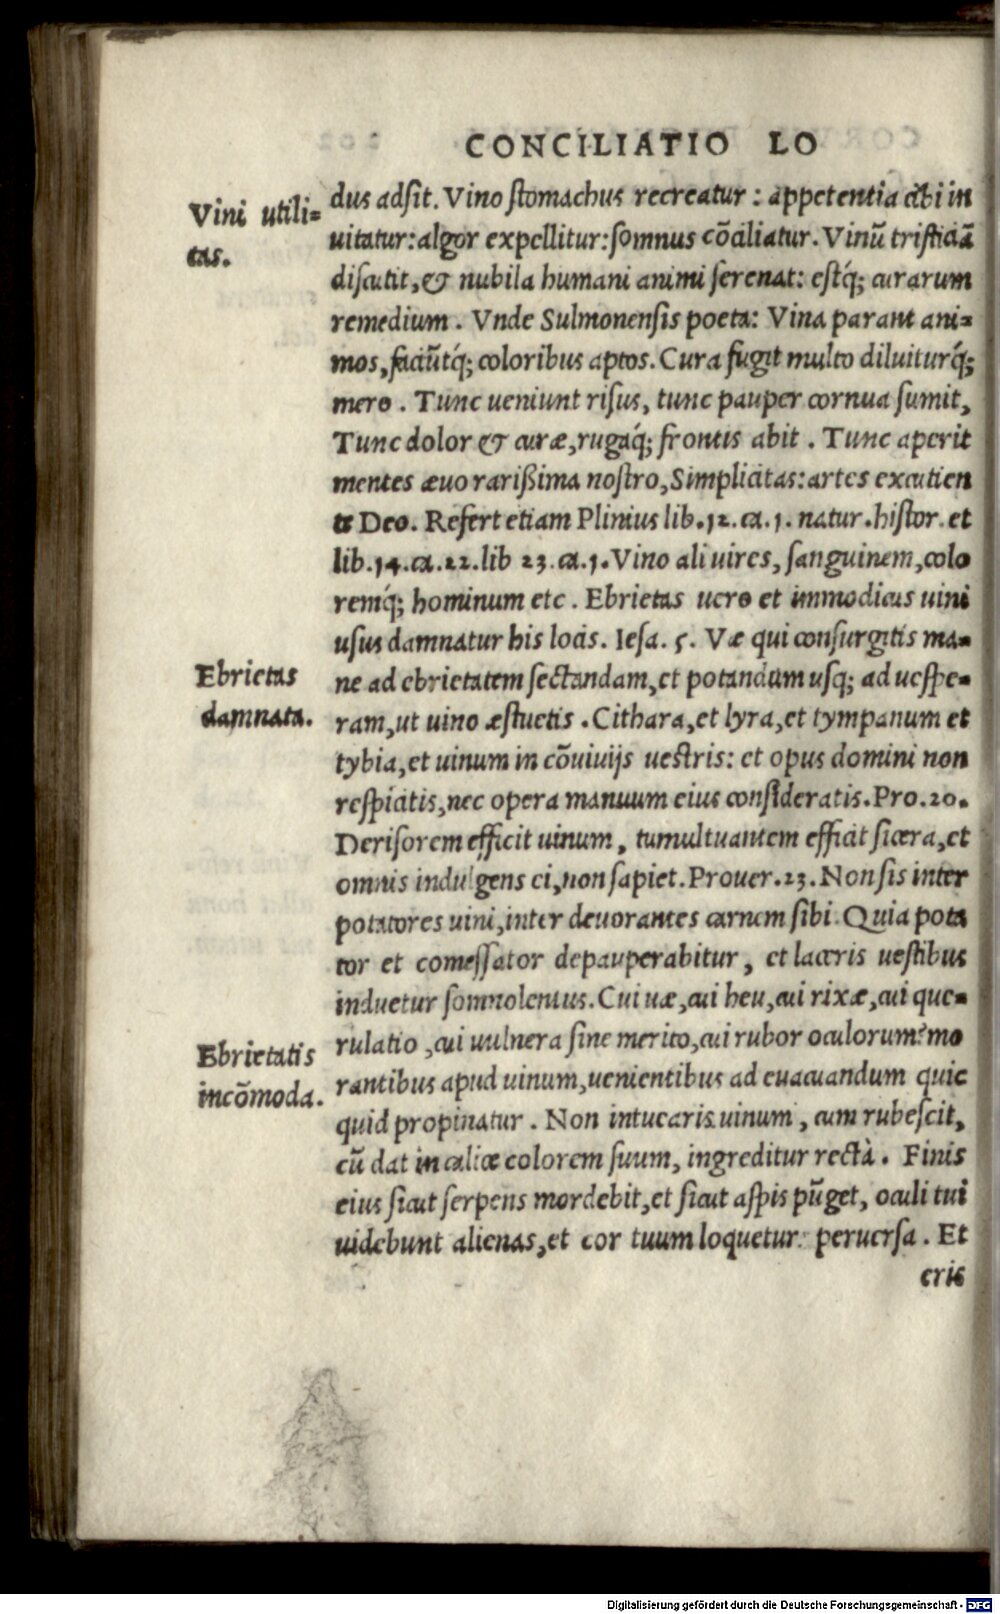 CONCILIATIO LO
Vini utili=
tas.
dus adsit. Vino stomachus recreatur : appetentia cibi in
uitatur: algor expellitur: somnus cõciliatur. Vinũ tristiciã
discutit, & nubila humani animi serenat: estq́; curarum
remedium . Vnde Sulmonensis poeta: Vina parant ani=
mos, faciũtq́; coloribus aptos. Cura fugit multo diluiturq́;
mero . Tunc ueniunt risus, tunc pauper cornua sumit,
Tunc dolor & curæ, rugaq́; frontis abit . Tunc aperit
mentes æuo rarißima nostro, Simplicitas: artes excutien
te Deo. Refert etiam Plinius lib. 12. ca. 1. natur. histor. et
lib. 14. ca. 22. lib 23. ca. 1. Vino ali uires, sanguinem, colo
remq́; hominum etc . Ebrietas uero et immodicus uini
usus damnatur his locis. Iesa. 5. Væ qui consurgitis ma=
Ebrietas
damnata.
ne ad ebrietatem sectandam, et potandum usq; ad uespe=
ram, ut uino æstuetis . Cithara, et lyra, et tympanum et
tybia, et uinum in cõuiuijs uestris: et opus domini non
respicitis, nec opera manuum eius consideratis. Pro. 20.
Derisorem efficit uinum, tumultuantem efficit sicera, et
omnis indulgens ei, non sapiet. Prouer. 23. Non sis inter
potatores uini, inter deuorantes carnem sibi. Quia pota
tor et comessator depauperabitur, et laceris uestibus
induetur somnolentus. Cui uæ, cui heu, cui rixæ, cui que=
Ebrietatis
incõmoda.
rulatio, cui uulnera sine merito, cui rubor oculorum? mo
rantibus apud uinum, uenientibus ad euacuandum quic
quid propinatur . Non intuearis uinum, cum rubescit,
cũ dat in calice colorem suum, ingreditur rectà . Finis
eius sicut serpens mordebit, et sicut aspis pũget, oculi tui
uidebunt alienas, et cor tuum loquetur peruersa . Et
eris
Digitalisierung gefördert durch die Deutsche Forschungsgemeinschaft - DFG